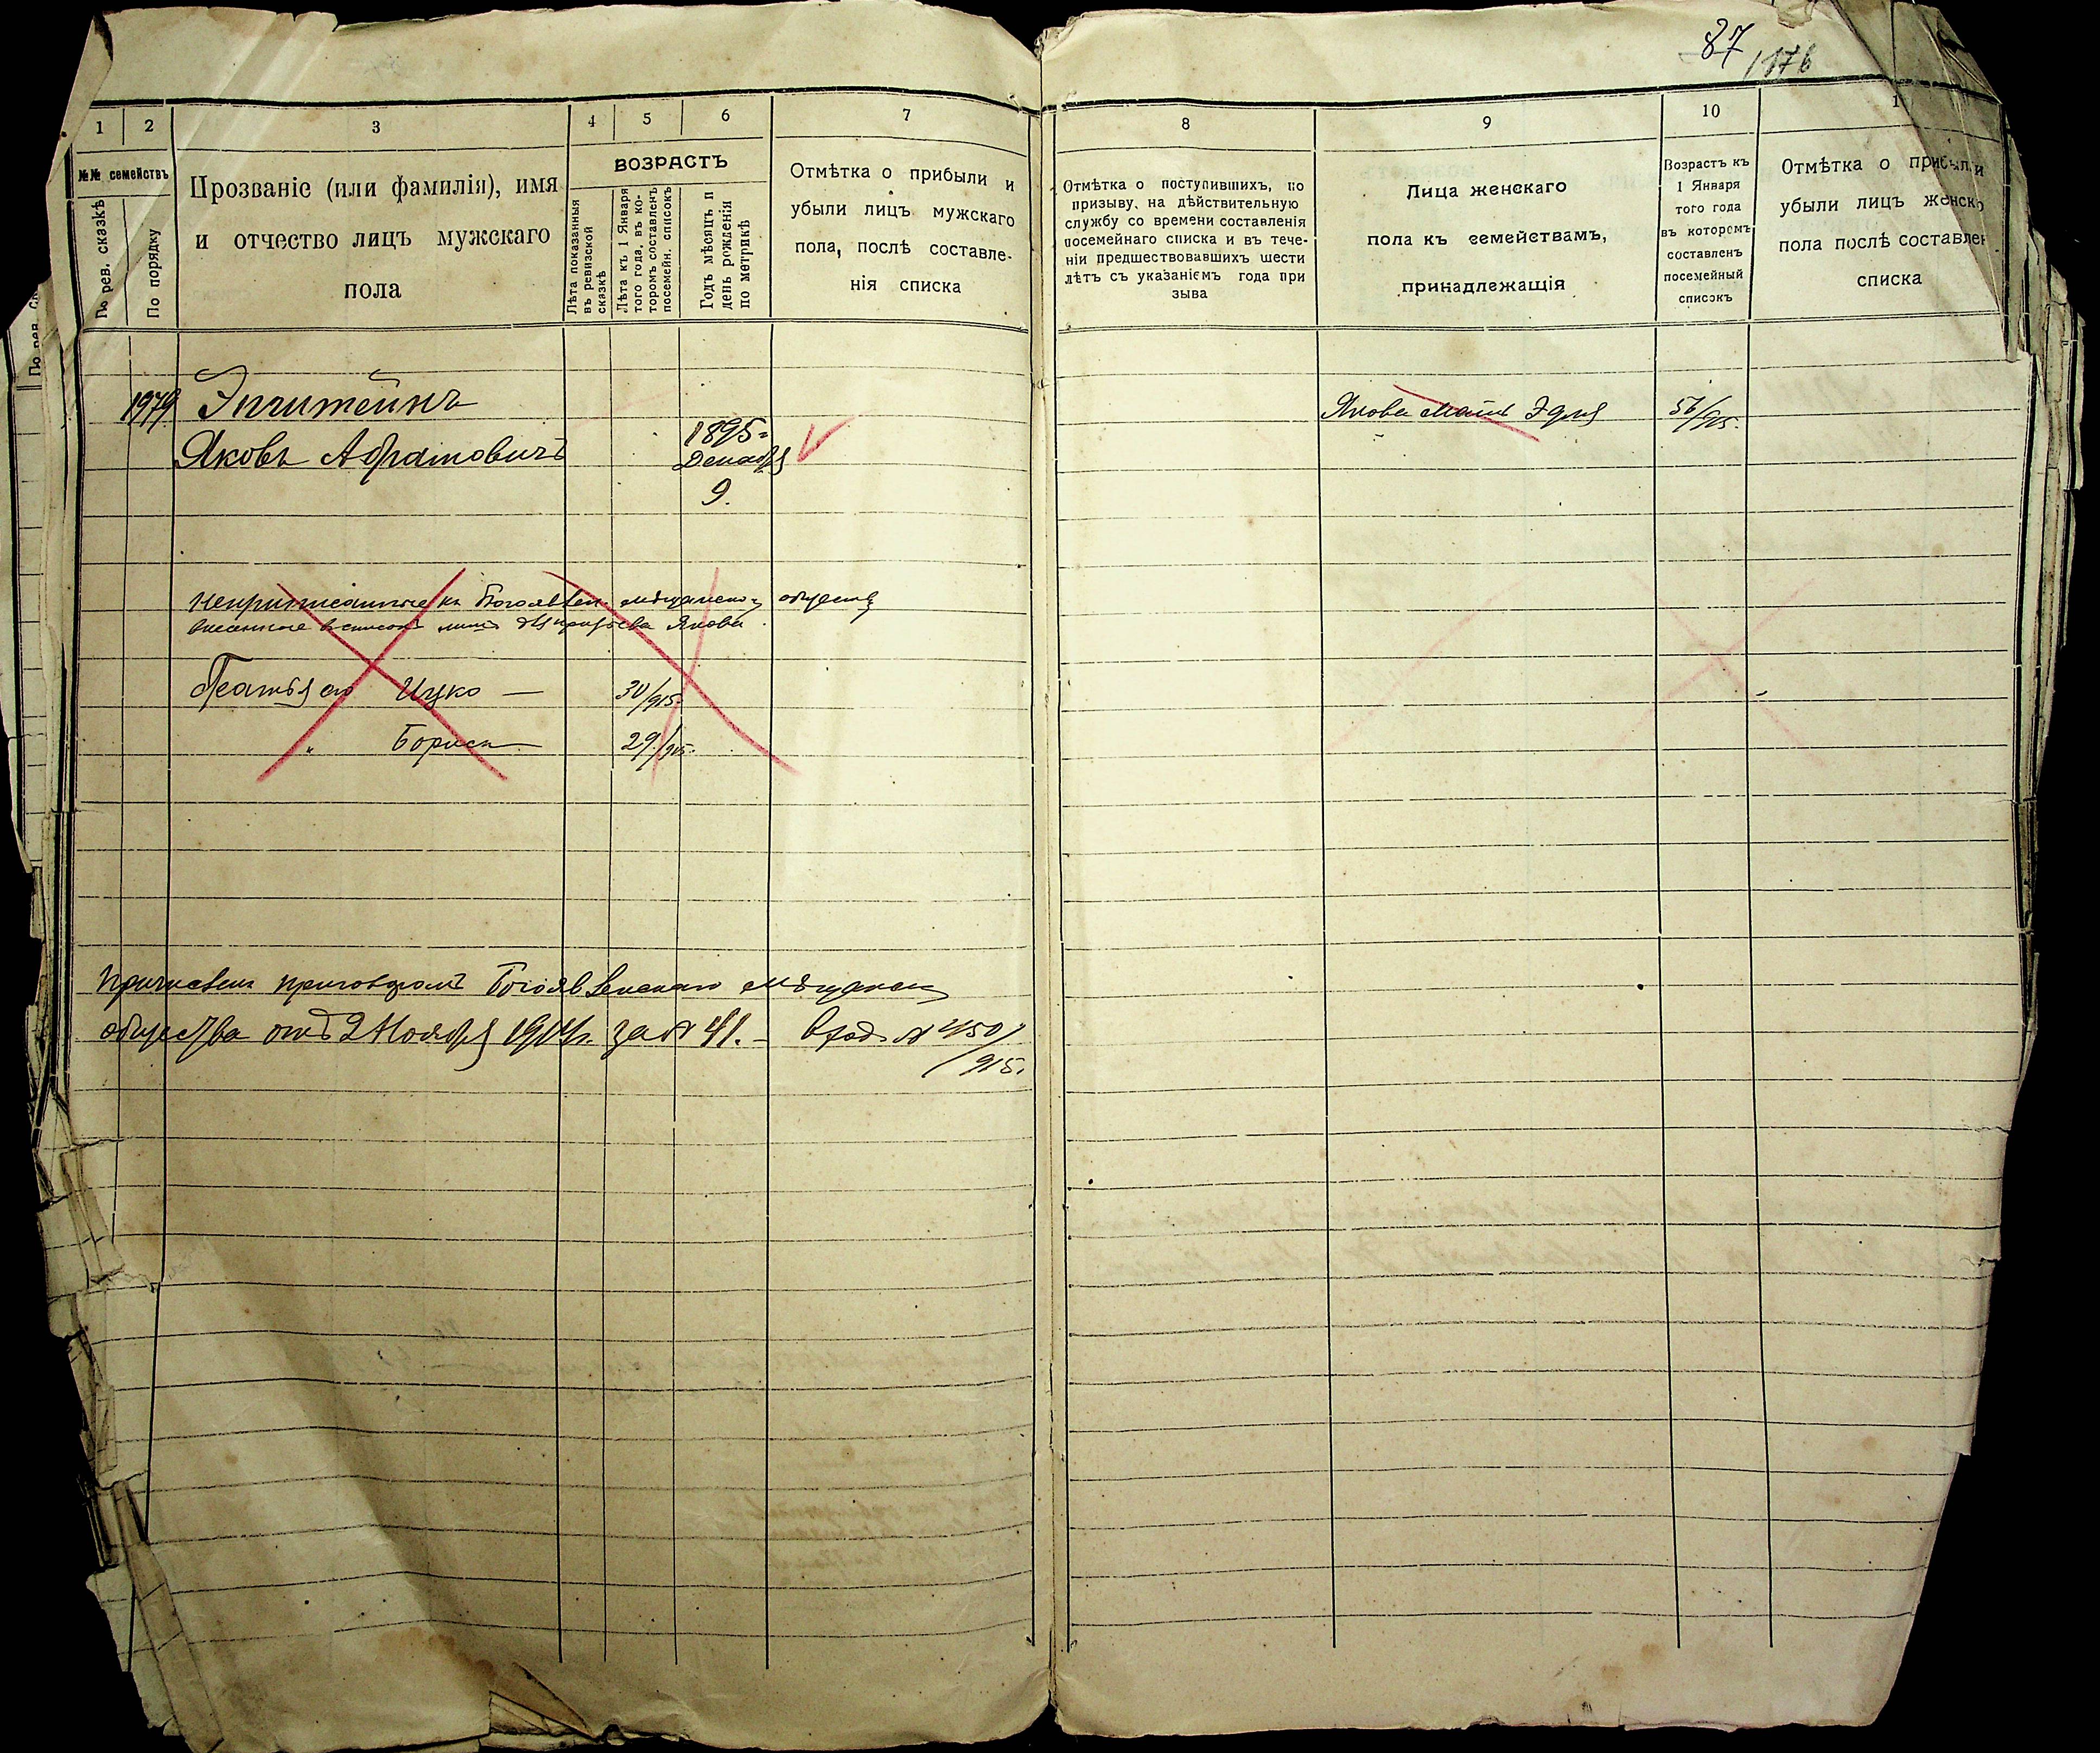 87
176
1
2
3
4
5
6
7
8
9
10
1
№№ семействъ
По рев. сказкѣ
По порядку
Прозваніе (или фамилія), имя
и отчество лицъ мужскаго
пола
ВОЗРАСТЪ
Лѣта показанныя
въ ревизской
сказкѣ
Лѣта къ 1 Января
того года, въ ко-
торомъ составленъ
посемейн. списокъ
Годъ мѣсяцъ и
день рожденія
по метрикѣ
Отмѣтка о прибыли и
убыли лицъ мужскаго
пола, послѣ составле-
нія списка
Отмѣтка о поступившихъ, по
призыву, на дѣйствительную
службу со времени составленія
посемейнаго списка и въ тече-
ніи предшествовавшихъ шести
лѣтъ съ указаніемъ года при
зыва
Лица женскаго
пола къ семействамъ,
принадлежащія
Возрастъ къ
1 Января
того года
въ которомъ
составленъ
посемейный
списокъ
Отмѣтка о прибыли и
убыли лицъ женско
пола послѣ составлен
списка
1979 Эпштейнъ
Яковъ Абрамовичъ
1895
Декабря
9.
Якова мать Эдля 56/915.
Неприписанные къ Богоявлен. мѣщанско обществу
внесенные въ списокъ лишь для призыва Якова.
Братья его Ицко — 30/915.
" Борисъ 29/915.
Причисленъ приговоромъ Богоявленскаго мѣщанск
общества отъ 2 Ноября 1914 г. за № 41. — вход № 450/
915.